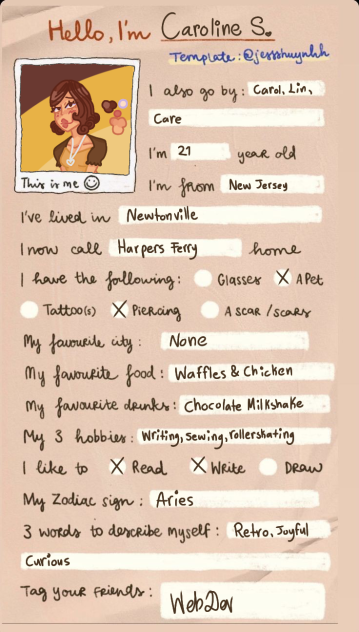 Hello, I'm Caroline S.
Template: @jesshuynhh
I also go by: Carol, Lin,
Care
I'm 21 year old
This is me
I'm from New Jersey
I've lived in Newtonville
I now call Harpers Ferry home
I have the following: Glasses X A Pet
Tattoo(s) X Piercing A scar / scars
My favourite city: None
My favourite food: Waffles & Chicken
My favourite drinks: Chocolate Milkshake
My 3 hobbies: Writing, sewing, rollerskating
I like to X Read X Write Draw
My Zodiac sign: Aries
3 words to describe myself: Retro, Joyful
Curious
Tag your friends: WebDev